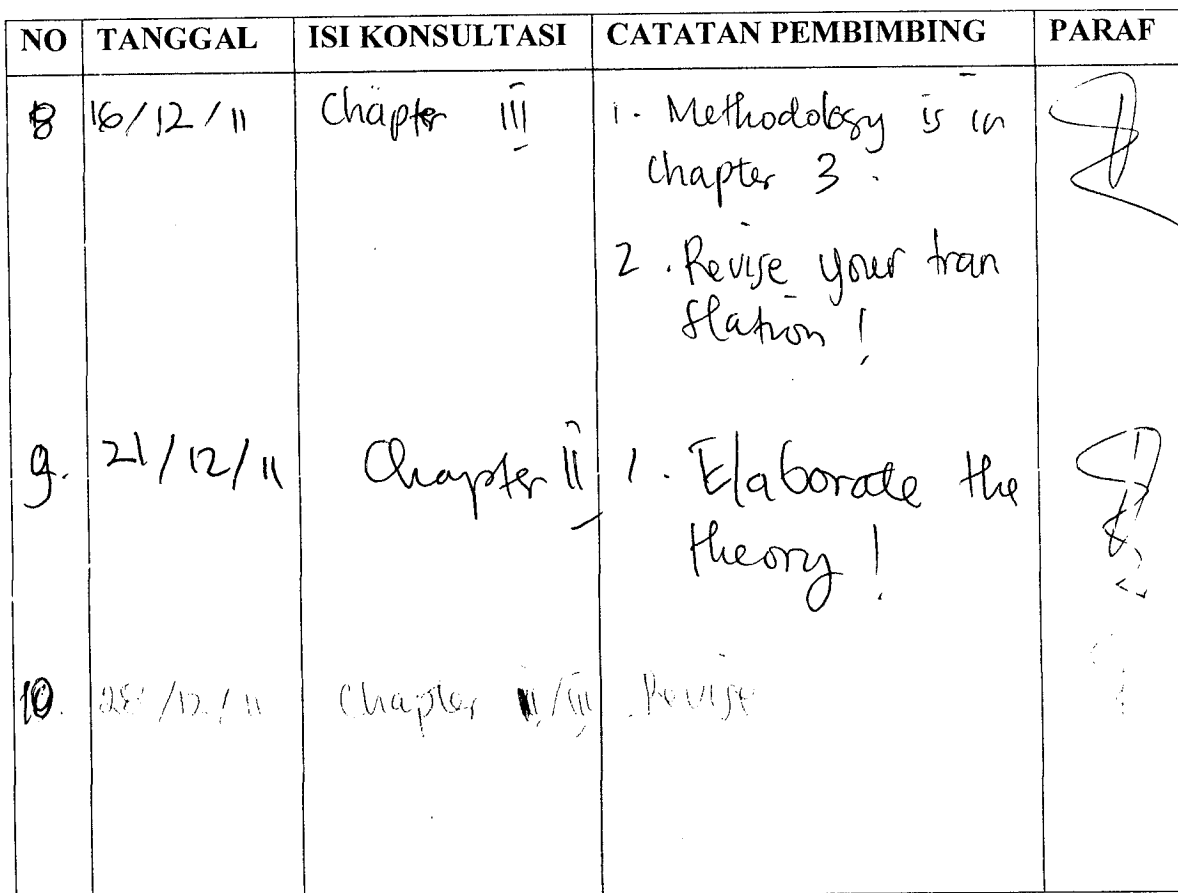 NO TANGGAL ISI KONSULTASI CATATAN PEMBIMBING PARAF
8 16/12/11 Chapter III 1. Methodology is in
chapter 3.
2. Revise your tran
slation!
9. 21/12/11 Chapter II 1. Elaborate the
theory!
10. 28/12/11 Chapter II/III Revise